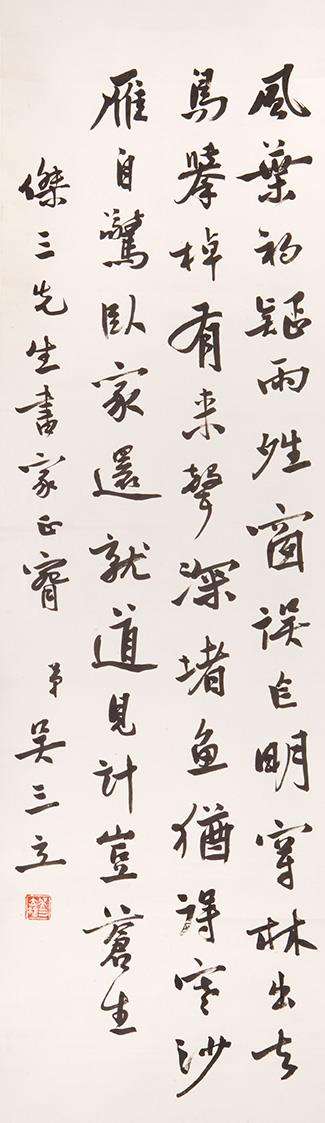 風葉初疑雨夝窗誤作明穿林出去
鳥擧棹有来聲深堵魚猶得寒沙
雁自驚臥家還就道見計豈蒼生
傑三先生書家正 弟吴三立